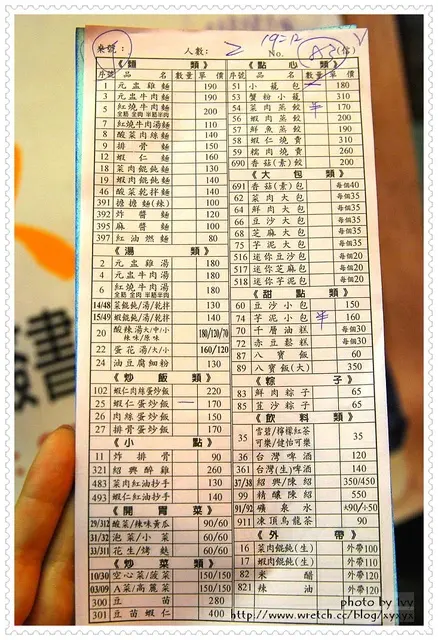 桌號: 人數: 2 19=12 No. (市)
《麵類》
序號 品名 數量 單價
1 元盅雞麵 190
3 元盅牛肉麵 190
5 紅燒牛肉麵 全筋 全肉 半筋半肉 200
7 紅燒牛肉湯麵 110
8 酸菜肉絲麵 130
9 排骨麵 150
12 蝦仁麵 160
18 菜肉餛飩麵 130
19 蝦肉餛飩麵 140
46 酸菜乾拌麵 140
391 擔擔麵(辣) 100
392 炸醬麵 120
395 麻醬麵 100
397 紅油燃麵 80
《湯類》
2 元盅雞湯 180
4 元盅牛肉湯 180
6 紅燒牛肉湯 全筋 全肉 半筋半肉 180
14/48 菜餛飩/湯/乾拌 130
15/49 蝦餛飩/湯/乾拌 140
20 酸辣湯大/中/小 辣味/原味 180/120/70
22 蛋花湯/大/小 160/120
24 油豆腐細粉 130
《炒飯類》
102 蝦仁肉絲蛋炒飯 220
25 蝦仁蛋炒飯 一 170
26 肉絲蛋炒飯 150
27 排骨蛋炒飯 170
《小點》
11 炸排骨 90
321 紹興醉雞 260
483 菜肉紅油抄手 130
493 蝦仁紅油抄手 140
《開胃菜》
29/312 酸菜/辣味黃瓜 90/60
31/32 泡菜/小菜 60/60
33/311 花生/烤麩 60/60
《炒菜類》
10/30 空心菜/菠菜 150/150
03/09 A菜/高麗菜 150/150
300 豆苗 280
301 豆苗蝦仁 400
《點心類》
序號 品名 數量 單價
51 小籠包 180
53 蟹粉小籠 310
54 菜肉蒸餃 半 170
56 蝦肉蒸餃 200
57 鮮魚蒸餃 190
58 蝦肉燒賣 310
59 糯肉燒賣 260
690 香菇(素)餃 200
《大包類》
691 香菇(素)包 每個40
62 菜肉大包 每個35
64 鮮肉大包 每個35
66 豆沙大包 每個35
68 芝麻大包 每個35
75 芋泥大包 每個35
516 迷你豆沙包 每個20
517 迷你芝麻包 每個20
518 迷你芋泥包 每個20
《甜點類》
60 豆沙小包 150
74 芋泥小包 半 160
70 千層油糕 每個30
72 赤豆鬆糕 每個30
87 八寶飯 60
89 八寶飯(大) 350
《粽子》
83 鮮肉粽子 65
85 豆沙粽子 65
《飲料類》
35 雪碧/檸檬紅茶 可樂/健怡可樂 35
36 台灣啤酒 120
361 台灣(生)啤酒 140
37/38 紹興/陳紹 350/450
99 精釀陳紹 550
91/92 礦泉水 大90/小50
911 凍頂烏龍茶 90
《外帶》
16 菜肉餛飩(生) 外帶100
17 蝦肉餛飩(生) 外帶110
82 米醋 外帶120
821 辣油 外帶120
photo by ivy
http://www.wretch.cc/blog/xyxyx